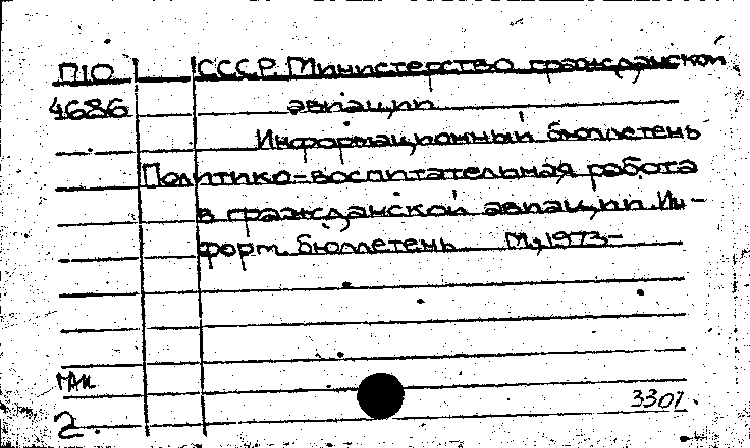 П10 СССР. Министерство гражданской
4686 авиации
Информационный бюллетень
Политико-воспитательная работа
в гражданской авиации. Ин-
форм. бюллетень М, 1973-
ГАИ
3301
2.